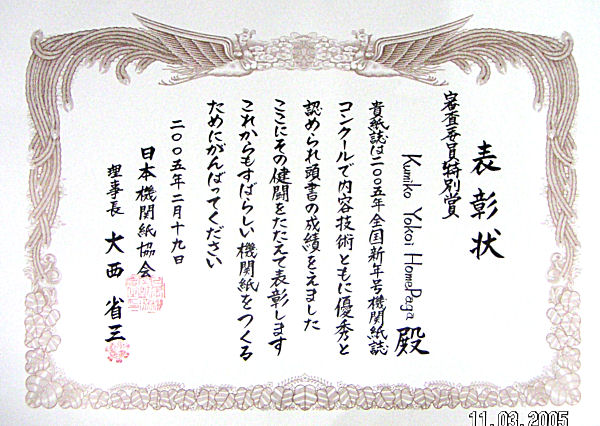 表彰状
審査委員特別賞
Kumiko Yokoi HomePaga 殿
貴紙誌は二〇〇五年全国新年号機関紙誌
コンクールで内容技術ともに優秀と
認められ頭書の成績をえました
ここにその健闘をたたえて表彰します
これからもすばらしい機関紙をつくる
ためにがんばってください
二〇〇五年二月十九日
日本機関紙協会
理事長 大西省三
11.03.2005